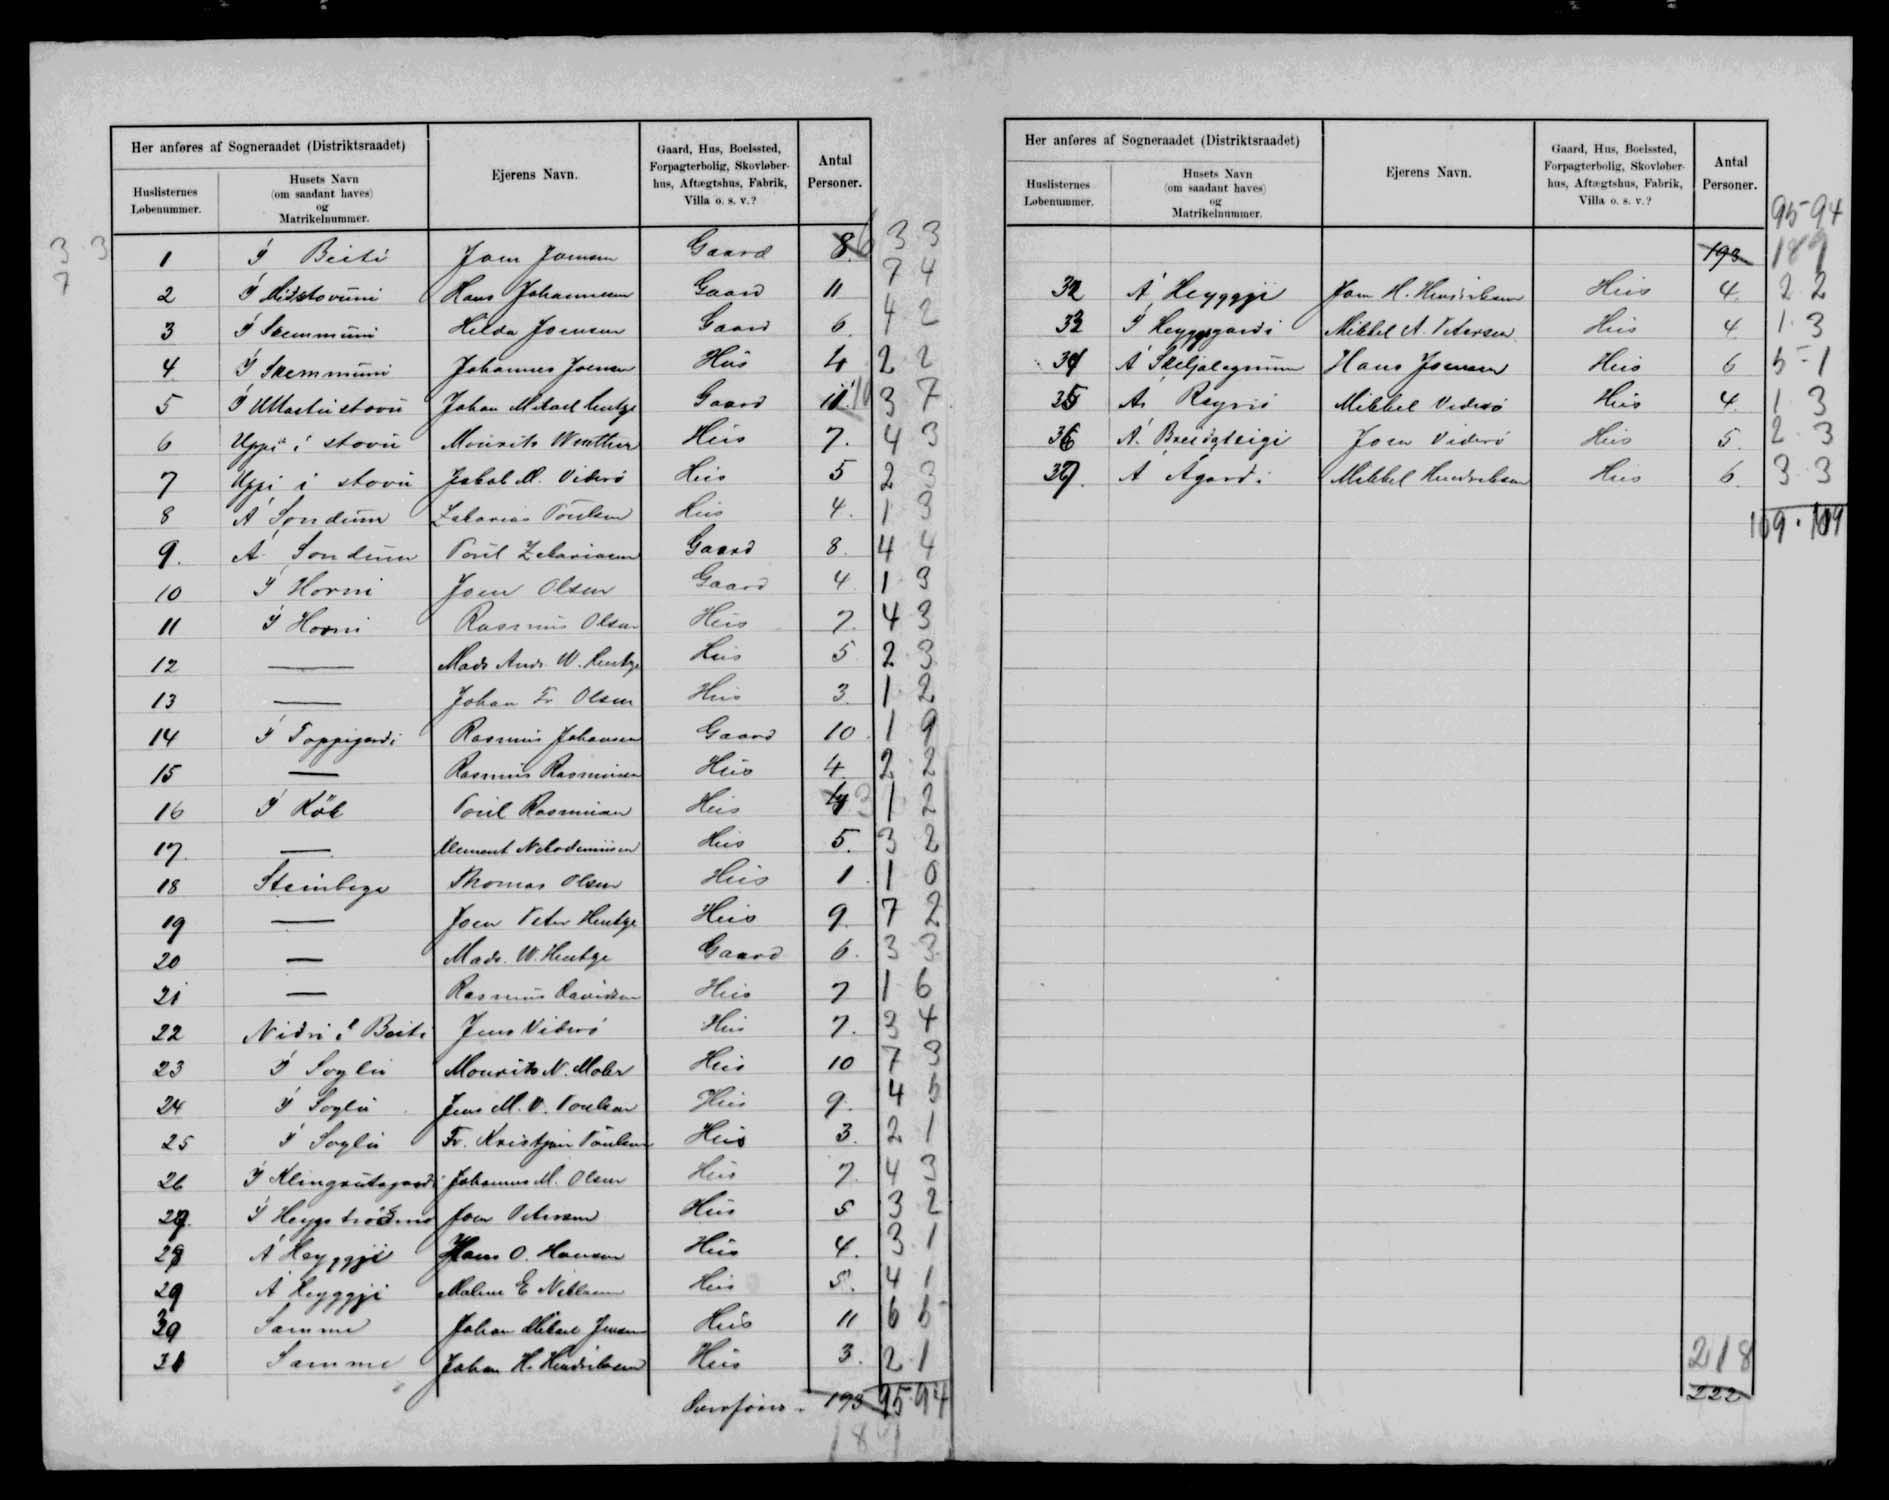 Her anføres af Sogneraadet (Distriktsraadet)
Huslisternes Løbenummer. | Husets Navn (om saadant haves) og Matrikelnummer. | Ejerens Navn. | Gaard, Hus, Boelssted, Forpagterbolig, Skovløberhus, Aftægtshus, Fabrik, Villa o. s. v.? | Antal Personer.
3 3
7
1 Í Beiti Joen Joensen Gaard 8 6 3 3
2 Í Midstovuni Hans Johannesen Gaard 11 7 4
3 Í Skemmuni Hilda Joensen Gaard 6. 4 2
4 Í Skemmuni Johannes Joensen Hús 4 2 2
5 Í Mastustovu Johan Mikael Hentze Gaard 11 10 3 7
6 Uppi í stovu Mourits Winther Hús 7. 4 3
7 Uppi í stovu Jakob M. Viderø Hús 5 2 3
8 Á Sondum Zakarias Poulsen Hús 4. 1 3
9. Á Sondum Poul Zakariasen Gaard 8. 4 4
10 Í Horni Joen Olsen Gaard 4. 1 3
11 Í Horni Rasmus Olsen Hús 7. 4 3
12 — Mads Andr. W. Hentze Hús 5 2 3
13 — Johan Fr. Olsen Hús 3. 1 2
14 Í Toppigardi Rasmus Johansen Gaard 10. 1 9
15 — Rasmus Rasmussen Hús 4 2 2
16 Í Kök Poul Rasmussen Hús 4 3 1 2
17. — Klement Nikodemussen Hús 5. 3 2
18 Steinbege Thomas Olsen Hús 1. 1 0
19 — Joen Peter Hentze Hús 9. 7 2
20 — Mads. W. Hentze Gaard 6. 3 3
21 — Rasmus Davidsen Hús 7 1 6
22 Nidri í Beiti Jens Viderø Hús 7. 3 4
23 Í Soylu Mourits N. Mohr Hús 10 7 3
24 Í Soylu Jens M. V. Poulsen Hús 9. 4 5
25 Í Soylu Fr. Kristjan Poulsen Hús 3. 2 1
26 Í Klingrutagardi Johannes M. Olsen Hús 7. 4 3
27. Joen Petersen Hús 5 3 2
28 Á Heyggji Hans O. Hansen Hús 4. 3 1
29 Á Heyggji Malene E Nielsen Hús 5. 4 1
30 Samme Johan Mikael Jensen Hús 11 6 5
31 Samme Johan H. Hendriksen Hús 3. 2 1
193 95 94
189
Her anføres af Sogneraadet (Distriktsraadet)
Huslisternes Løbenummer. | Husets Navn (om saadant haves) og Matrikelnummer. | Ejerens Navn. | Gaard, Hus, Boelssted, Forpagterbolig, Skovløberhus, Aftægtshus, Fabrik, Villa o. s. v.? | Antal Personer.
95 94
193 189
32 Á Heyggji Joen H. Hendriksen Hús 4. 2 2
33 Í Heyggjgardi Mikkel A. Petersen Hús 4. 1 3
34 Á Skeljalegnum Hans Joensen Hús 6 5 1
35 Á Royni Mikkel Viderø Hús 4. 1 3
36 Á Breidateigi Joen Viderø Hús 5. 2 3
37. Á Ágardi Mikkel Hendriksen Hús 6. 3 3
109 . 109
218
222